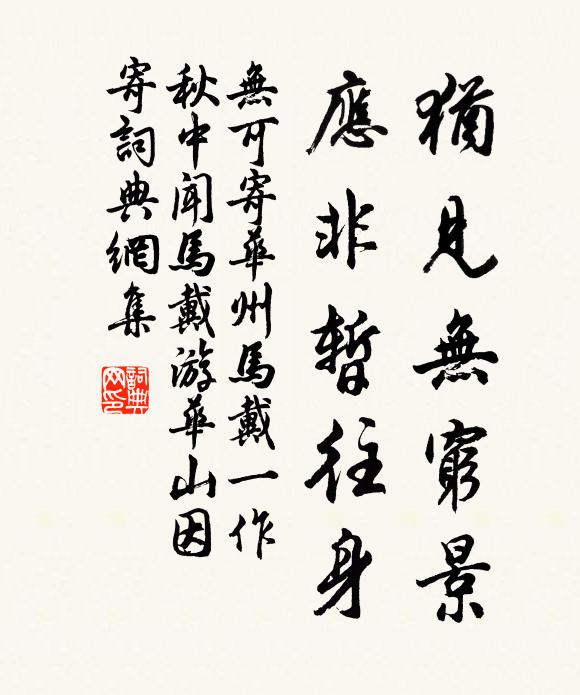 猶見無窮景
應非暫往身
無可寄華州馬戴一作
秋中聞馬戴游華山因
寄詞典網集
詞典
网印